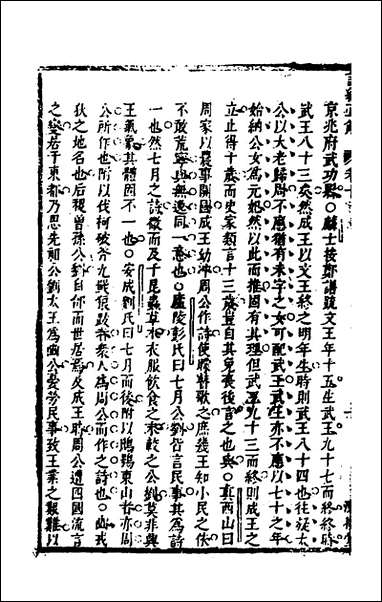 京兆府武功縣○麟士按鄭譜疏文王年十五生武王九十七而終終時
武王八十三矣然成王以文王終之明年生時則武王八十四也往疑太
公以大老歸周不應猶有未字之女可配武王武王亦不應以七十之年
始納公女為元妃然以此而推固有其理但武王九十三而終則成王之
立止得十歲而史家類言十三歲豈自其免喪後言之也與○真西山曰
周家以農事開國成王幼沖周公作詩使瞭瞽歌之庶幾王知小民之依
不敢荒寧與無逸同一意也○廬陵彭氏曰七月公劉皆言民事其為詩
一也然七月之詩微而及于昆蟲草木衣服飲食之末較之公劉莫非興
王氣象其體固不一也○安成劉氏曰七月而後附以鴟鴞東山者亦周
公所作也附以伐柯破斧九罭狼跋者衆人為周公而作之詩也○豳戎
狄之地名也后稷曾孫公劉自邰而世居焉及成王時周公遭四國流言
之變若于東都乃思先祖公劉太王為豳公憂勞民事致王業之艱難以